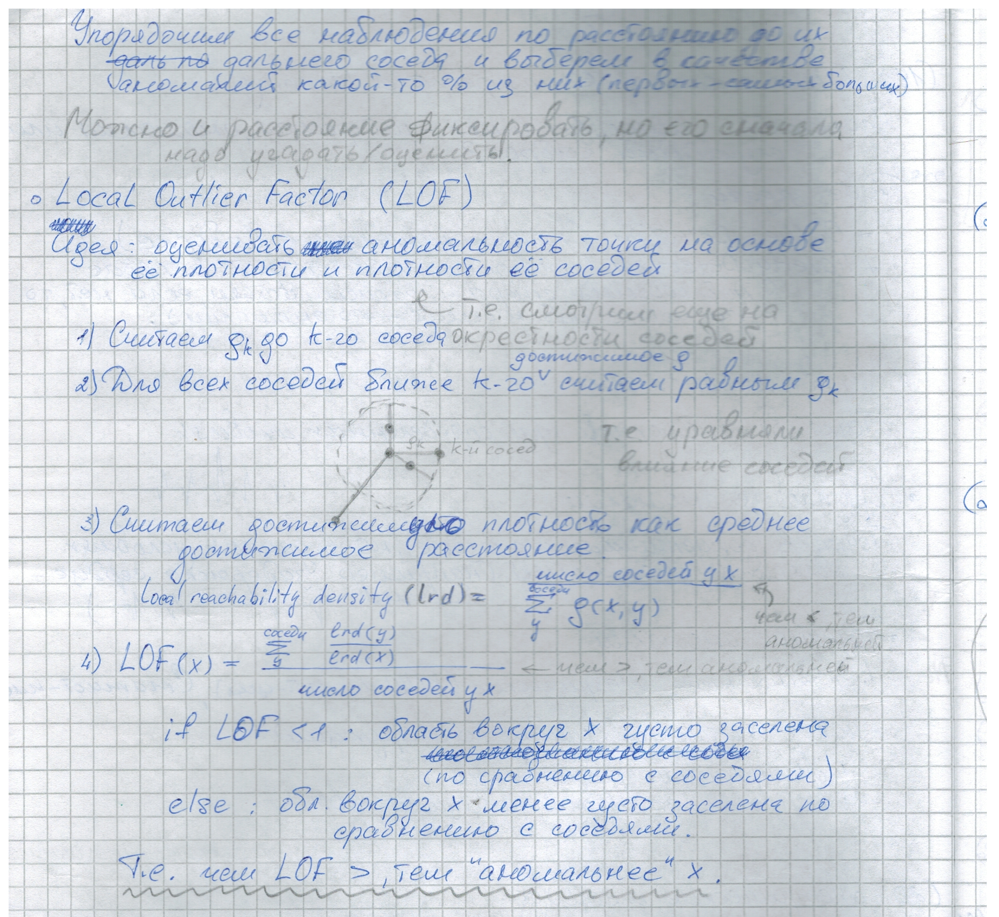 Упорядочим все наблюдения по расстоянию до их
даль по дальнего соседа и выберем в качестве
аномалий какой-то % из них (первых - самых больших)
Можно и расстояние фиксировать, но его сначала
надо угадать/оценить.
Local Outlier Factor (LOF)
Идея: оценивать аномальность точки на основе
её плотности и плотности её соседей
т.е. смотрим еще на
окрестности соседей
1) Считаем ρk до k-го соседа
достижимое ρ
2) Для всех соседей ближе k-го считаем равным ρk
т.е уравняли
влияние соседей
ρk
k-й сосед
3) Считаем достижимую плотность как среднее
достижимое расстояние.
Local reachability density (lrd) = число соседей у x / соседи ∑ y ρ(x, y)
чем <, тем
аномальней
4) LOF(x) = соседи ∑ y lrd(y) / lrd(x)
число соседей у x
← чем >, тем аномальней
if LOF < 1 : область вокруг x густо заселена
(по сравнению с соседями)
else : обл. вокруг x менее густо заселена по
сравнению с соседями.
Т.е. чем LOF >, тем "аномальнее" x.